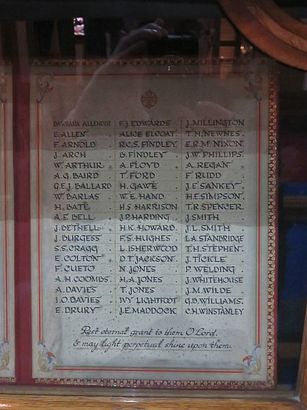 BARBARA ALLENDER
E. ALLEN
F. ARNOLD
J. ARCH
W. ARTHUR
A. G. BAIRD
G. E. J. BALLARD
W. BARLAS
H. BATE
A. E. BELL
J. BETHELL
J. BURGESS
S. S. CRAGG
E. COLTON
F. CUETO
A. H. COOMBS
A. DAVIES
J. O. DAVIES
E. DRURY
F. J. EDWARDS
ALICE ELCOAT
R. C. S. FINDLEY
B. FINDLEY
A. FLOYD
T. FORD
H. GAWE
W. E. HAND
H. S. HARRISON
J. P. HARDING
H. K. HOWARD
F. S. HUGHES
L. ISHERWOOD
D. T. JACKSON
N. JONES
H. A. JONES
T. JONES
IVY LIGHTFOOT
J. E. MADDOCK
J. MILLINGTON
T. H. NEWNES
E. R. M. NIXON
J. W. PHILLIPS
A. REGAN
F. RUDD
J. E. SANKEY
H. E. SIMPSON
T. R. SPENCER
J. SMITH
J. L. SMITH
L. A. STANBRIDGE
T. H. STEPHEN
J. TICKLE
P. WELDING
J. WHITEHOUSE
J. M. WILDE
G. D. WILLIAMS
C. H. WINSTANLEY
Rest eternal grant to them O Lord,
& may light perpetual shine upon them.